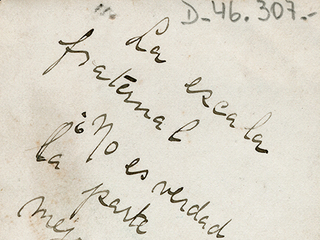 D-46.307.-
La escala
fraternal
¿No es verdad
la parte
mej